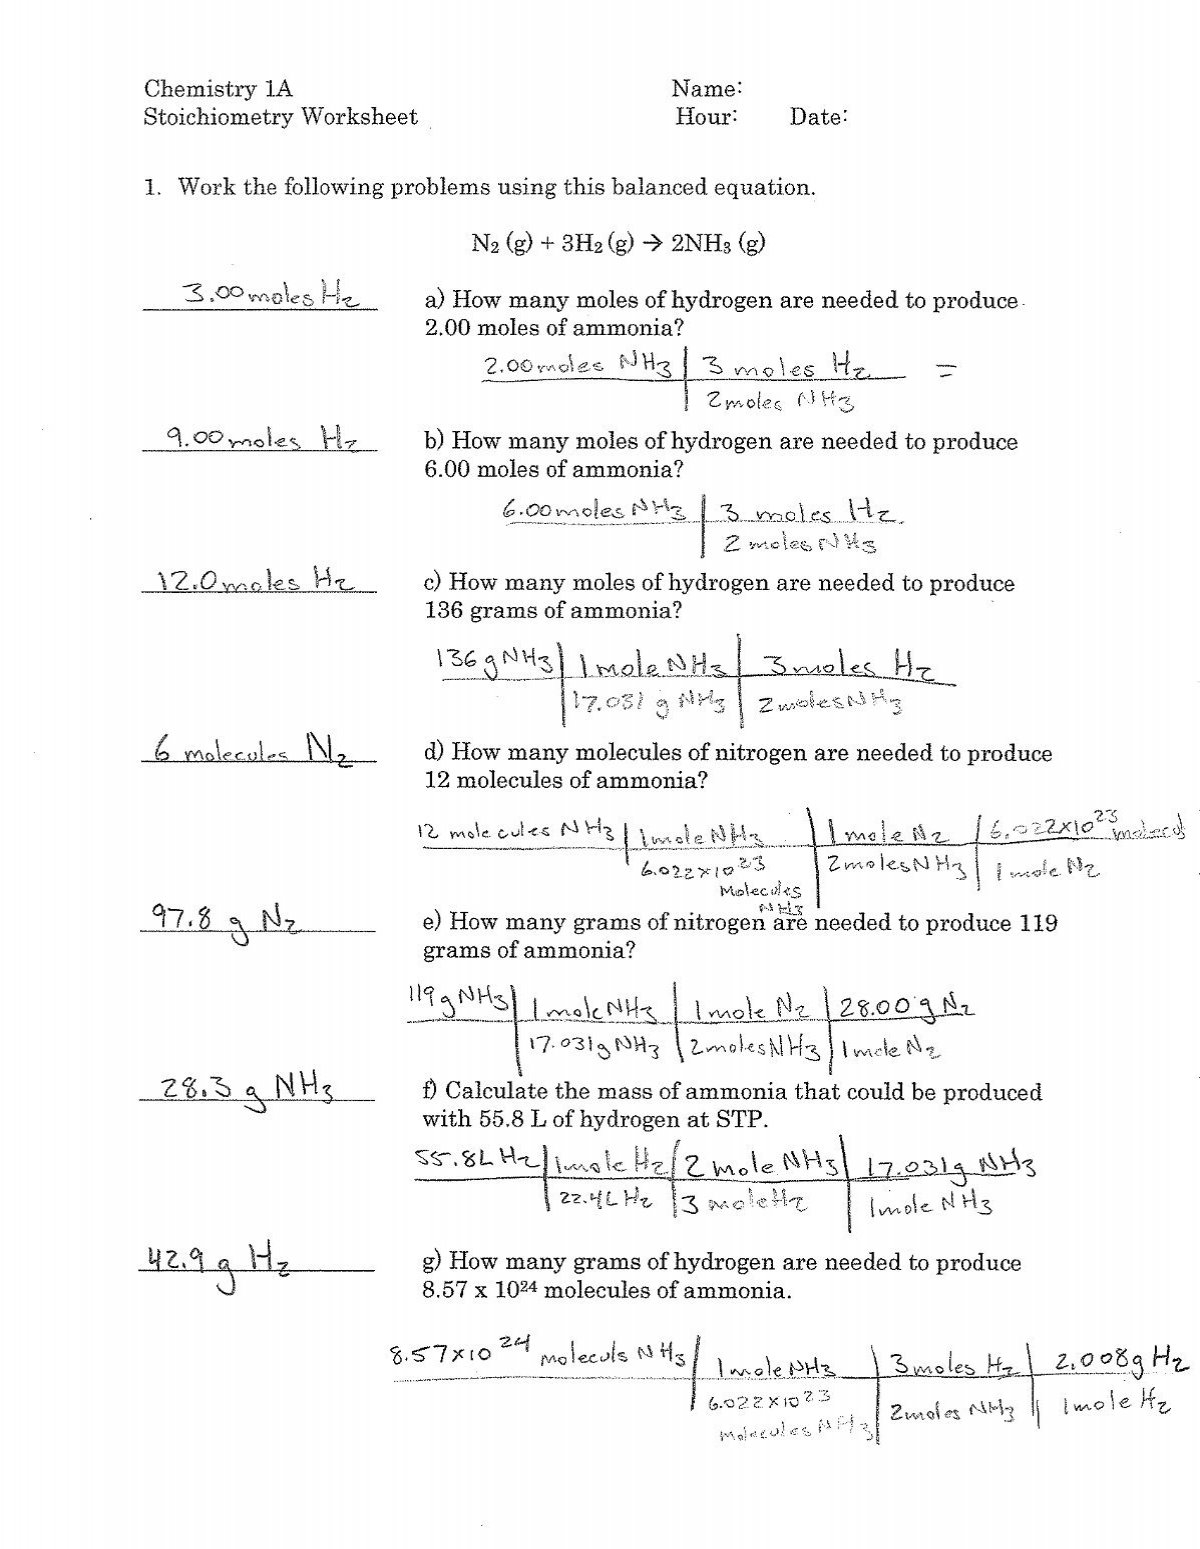 Chemistry 1A
Name:
Stoichiometry Worksheet
Hour: Date:
1. Work the following problems using this balanced equation.
N2 (g) + 3H2 (g) → 2NH3 (g)
3.00 moles H2
a) How many moles of hydrogen are needed to produce
2.00 moles of ammonia?
2.00 moles NH3 | 3 moles H2 =
| 2 moles NH3
9.00 moles H2
b) How many moles of hydrogen are needed to produce
6.00 moles of ammonia?
6.00 moles NH3 | 3 moles H2
2 moles NH3
12.0 moles H2
c) How many moles of hydrogen are needed to produce
136 grams of ammonia?
136 g NH3 | 1 mole NH3 | 3 moles H2
17.031 g NH3 | 2 moles NH3
6 molecules N2
d) How many molecules of nitrogen are needed to produce
12 molecules of ammonia?
12 molecules NH3 | 1 mole NH3 | 1 mole N2 | 6.022×10²³ molecul
6.022×10²³ | 2 moles NH3 | 1 mole N2
Molecules
NH3
97.8 g N2
e) How many grams of nitrogen are needed to produce 119
grams of ammonia?
119 g NH3 | 1 mole NH3 | 1 mole N2 | 28.00 g N2
17.031 g NH3 | 2 moles NH3 | 1 mole N2
28.3 g NH3
f) Calculate the mass of ammonia that could be produced
with 55.8 L of hydrogen at STP.
55.8L H2 | 1 mole H2 | 2 mole NH3 | 17.031g NH3
22.4L H2 | 3 mole H2 | 1 mole NH3
42.9 g H2
g) How many grams of hydrogen are needed to produce
8.57 x 10²⁴ molecules of ammonia.
8.57×10²⁴ moleculs NH3 | 1 mole NH3 | 3 moles H2 | 2.008g H2
6.022×10²³ | 2 moles NH3 | 1 mole H2
molecules NH3